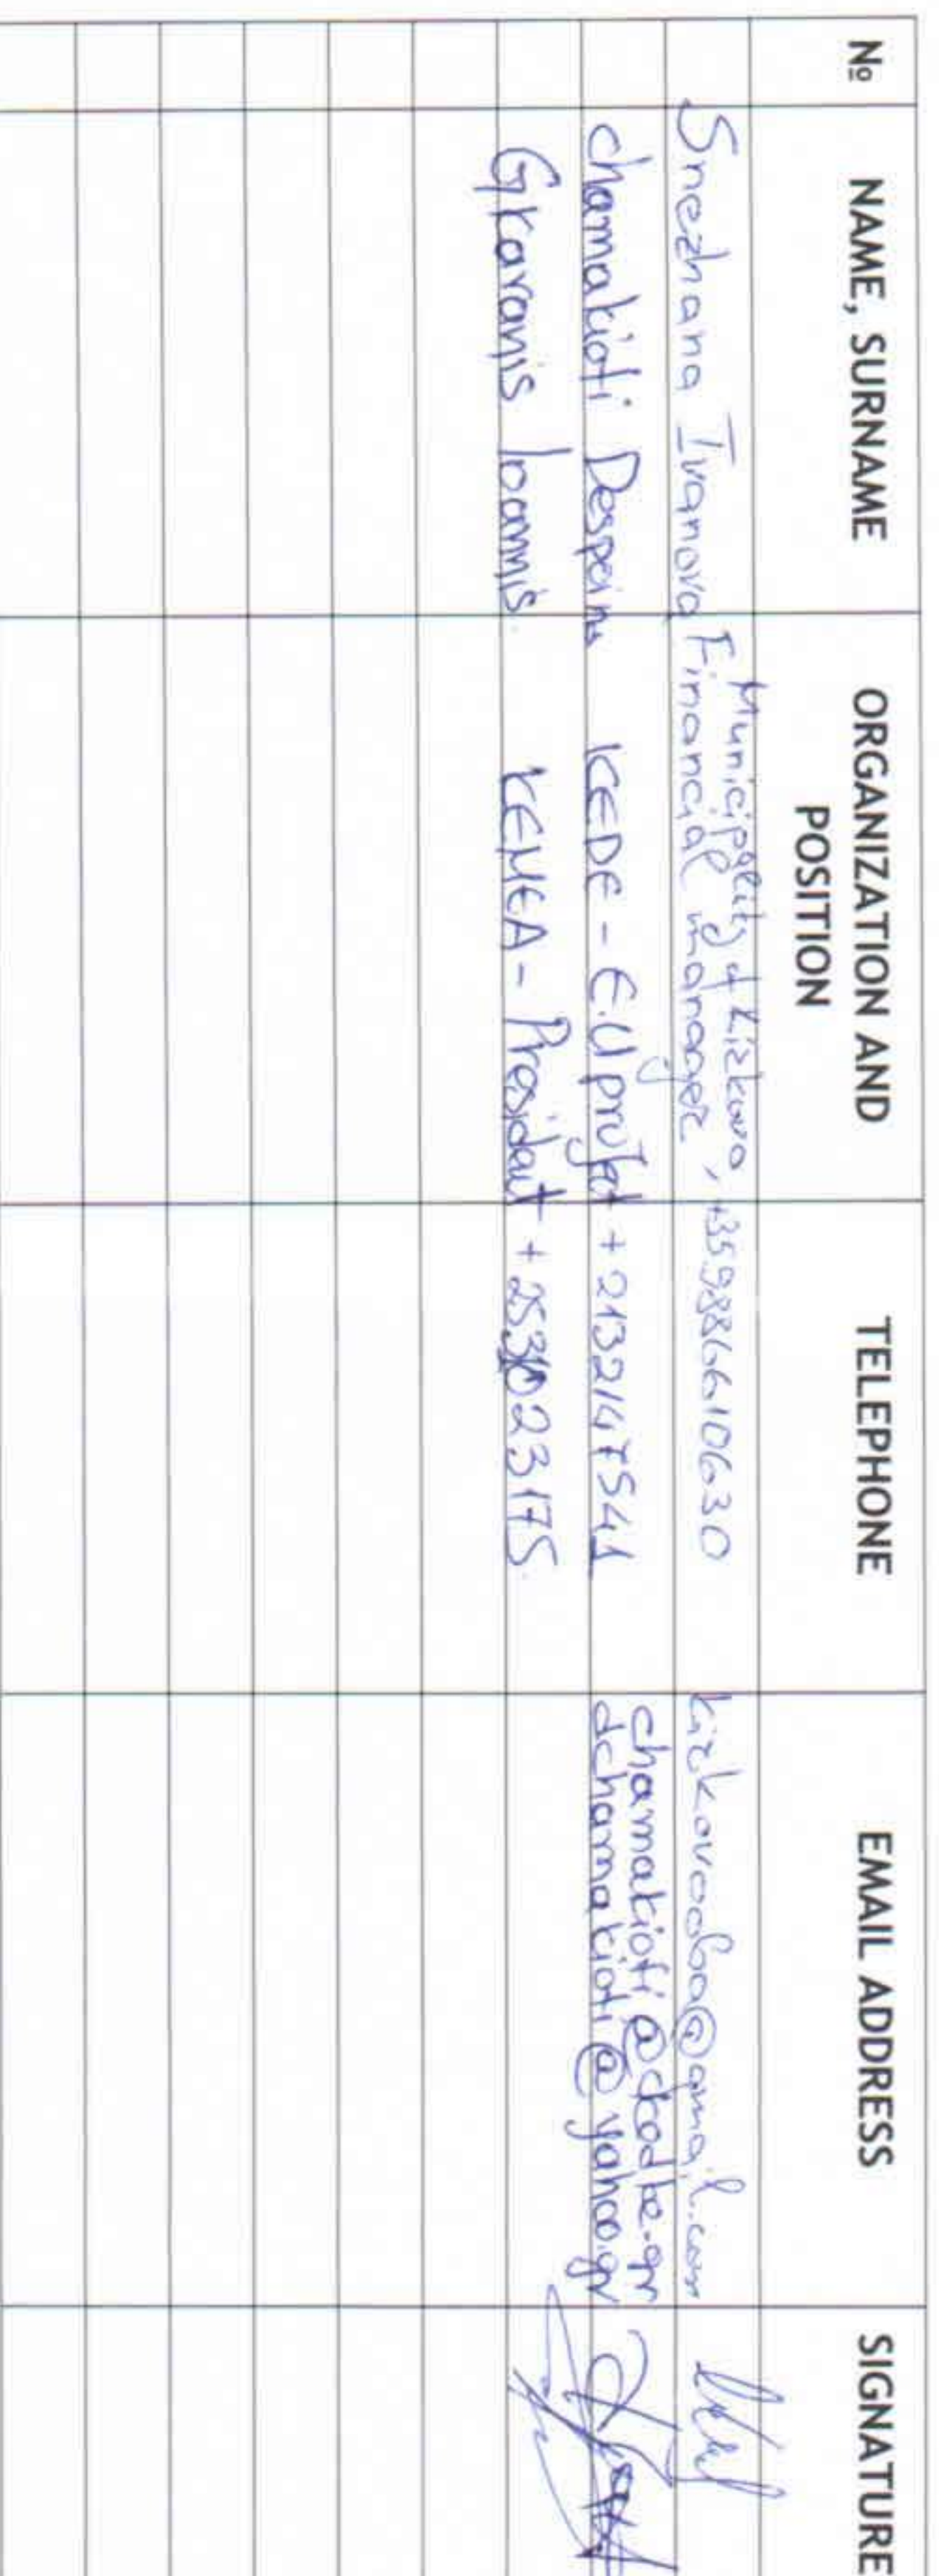 № NAME, SURNAME ORGANIZATION AND POSITION TELEPHONE EMAIL ADDRESS SIGNATURE
Snezhana Ivanova Municipality of Kirkovo, Financial manager +359886610630 kirkovooba@gmail.com
Chamakioti Despoina KEDE - E.U project +2132147541 chamakioti@ckodke.gr
dchamakioti@yahoo.gr
Gkaranis Ioannis KEMEA - President